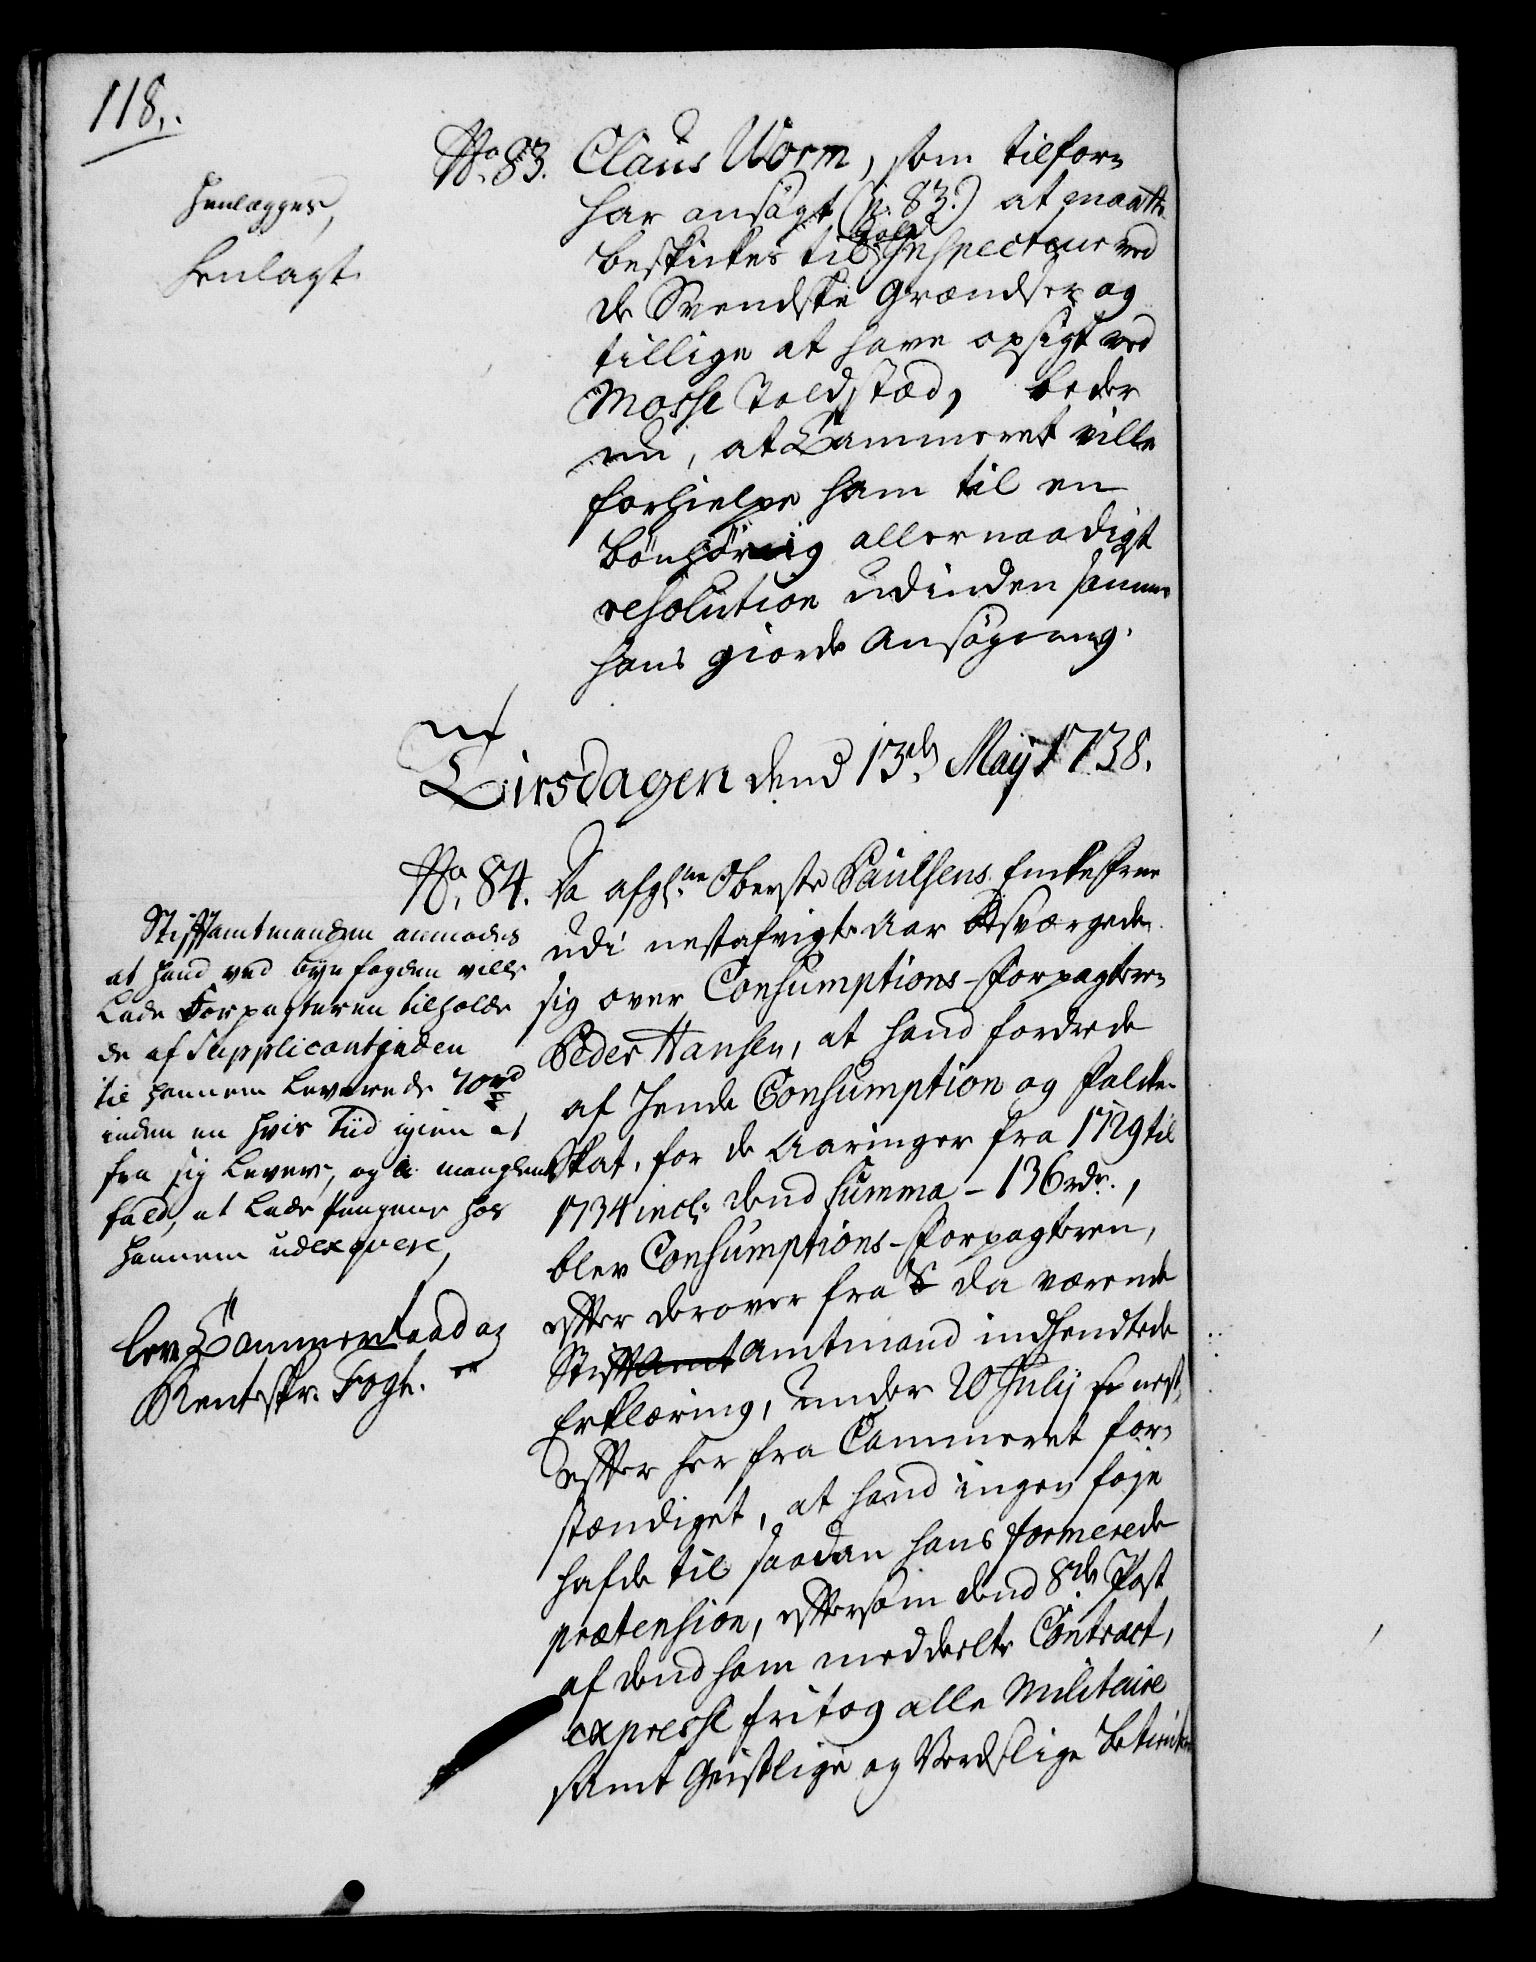 118.
No. 83. Claus Worm, som tilforn
har ansøgt (p. 83.) at maatte
beskikkes til Told Inspecteur ved
de Svendske Grændser og
tillige at have opsigt ved
Mosse Toldstæd, beder
nu, at Cammeret ville
forhielpe ham til en
bönhörlig allernaadigst
resolution udinden samme
hans giorde Ansøgning.
henlegges,
henlagt
Tirsdagen dend 13de Maij 1738.
No. 84. Da afgl. Oberste Paulsens Enkefrue
udi nestafvigte Aar besværgede
sig over Consumptions-Forpagteren
Peder Hansen, at hand fordrede
af hende Consumption og Folke-
Skat, for de Aaringer fra 1729 til
1734 incl: dend Summa - 136 rdr.,
blev Consumptions-Forpagteren,
efter derover fra da værende
Stiftamtmand indhendtede
Erklæring, under 20 Julij nest-
efter her fra Cammeret for-
stændiget, at hand ingen føje
hafde til saadan hans formerede
prætension, eftersom dend 8de Post
af dend ham meddeelte Contract,
expresse fritog alle Militaire
samt Geistlige og Verdslige betiente
Stiftamtmanden anmodes
at hand ved byefogden ville
Lade Forpagteren tilholde
de af Supplicantinden
til hannem Leverede 70 rd
inden en hvis Tiid igien at
fra sig Levere, og i manglende
fald, at Lade Pengene hos
hannem udexqvere,
lev. Cammerraad og
Renteskr. Fogh.